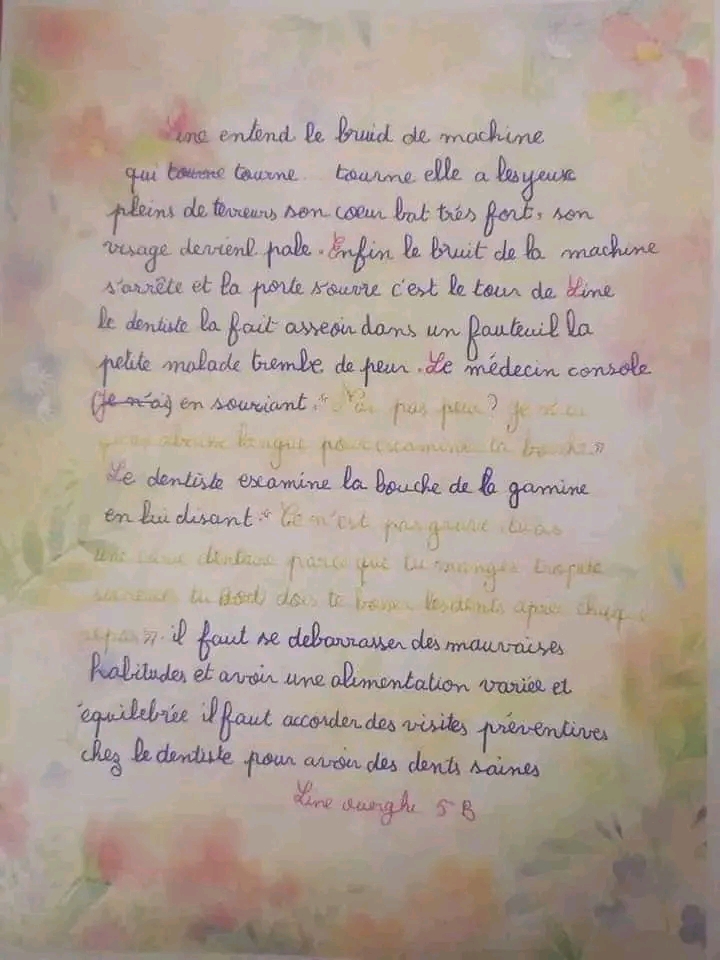 Line entend le bruid de machine
qui tourne tourne tourne elle a les yeux
pleins de terreurs son coeur bat trés fort, son
visage devient pale. Enfin le bruit de la machine
s'arrête et la porte s'ouvre c'est le tour de Line
le dentiste la fait asseoir dans un fauteuil la
petite malade trembe de peur. Le médecin console
(je n'ai) en souriant. " pas peur ? je
langue pour examine ta bouche "
Le dentiste examine la bouche de la gamine
en lui disant " Ce n'est pas grave tu as
une carie dentaire parce que tu manges trop de
tu dois te brosser les dents après chaque
repas ". il faut se debarrasser des mauvaises
habitudes et avoir une alimentation variée et
équilebrée il faut accorder des visites préventives
chez le dentiste pour avoir des dents saines
Line ouerghi 5 B